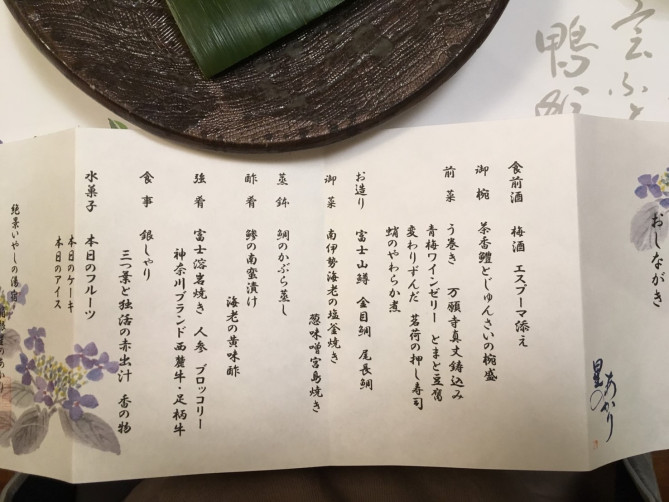 おしながき
星のあかり
食前酒　梅酒　エスプーマ添え
御椀　茶香鱧とじゅんさいの椀盛
前菜　う巻き　万願寺真丈鋳込み
青梅ワインゼリー　とまと豆腐
変わりずんだ　茗荷の押し寿司
蛸のやわらか煮
お造り　富士山鱒　金目鯛　尾長鯛
御菜　南伊勢海老の塩釜焼き
葱味噌宮島焼き
蒸鉢　鯛のかぶら蒸し
酢肴　鯵の南蛮漬け
海老の黄味酢
強肴　富士溶岩焼き　人参　ブロッコリー
神奈川ブランド西麓牛・足柄牛
食事　銀しゃり
三つ葉と独活の赤出汁　香の物
水菓子　本日のフルーツ
本日のケーキ
本日のアイス
絶景いやしの湯宿